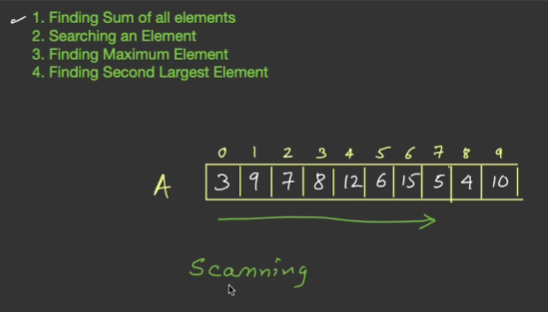 1. Finding Sum of all elements
2. Searching an Element
3. Finding Maximum Element
4. Finding Second Largest Element
0 1 2 3 4 5 6 7 8 9
A 3 9 7 8 12 6 15 5 4 10
Scanning